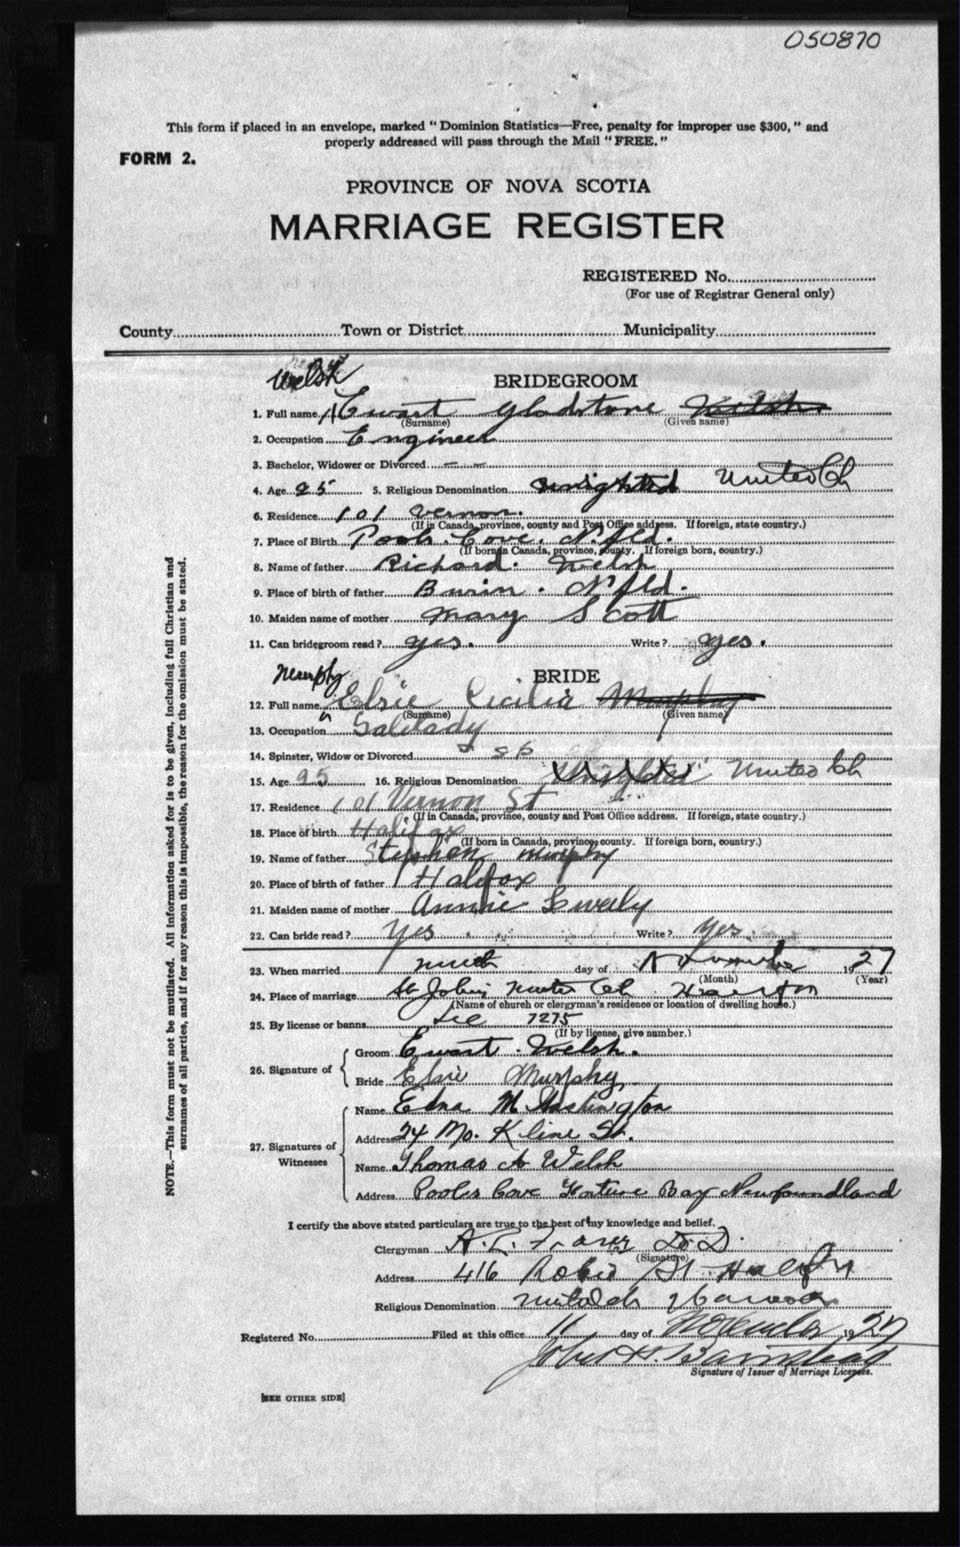 050870
This form if placed in an envelope, marked "Dominion Statistics—Free, penalty for improper use $300," and
properly addressed will pass through the Mail "FREE."
FORM 2.
PROVINCE OF NOVA SCOTIA
MARRIAGE REGISTER
REGISTERED No.
(For use of Registrar General only)
County Town or District Municipality
Welsh
BRIDEGROOM
1. Full name Ewart Gladstone Welsh
(Surname) (Given name)
2. Occupation Engineer
3. Bachelor, Widower or Divorced
4. Age 25 5. Religious Denomination United Ch
6. Residence 101 Vernon.
(If in Canada, province, county and Post Office address. If foreign, state country.)
7. Place of Birth Pools Cove. Nfld.
(If born in Canada, province, county. If foreign born, country.)
8. Name of father Richard. Welsh
9. Place of birth of father Burin. Nfld.
10. Maiden name of mother Mary Scott
11. Can bridegroom read? yes. Write? yes.
Murphy
BRIDE
12. Full name Elsie Cicilia Murphy
(Surname) (Given name)
13. Occupation Salelady
14. Spinster, Widow or Divorced sp
15. Age 25 16. Religious Denomination United Ch
17. Residence 101 Vernon St
(If in Canada, province, county and Post Office address. If foreign, state country.)
18. Place of birth Halifax
(If born in Canada, province, county. If foreign born, country.)
19. Name of father Stephen Murphy
20. Place of birth of father Halifax
21. Maiden name of mother Annie
22. Can bride read? Yes Write? Yes.
23. When married day of November 1927
(Month) (Year)
24. Place of marriage St Johns United Ch
(Name of church or clergyman's residence or location of dwelling house.)
25. By license or banns Lic 7275
(If by license, give number.)
26. Signature of
Groom Ewart. Welsh.
Bride Elsie Murphy
27. Signatures of
Witnesses
Name Edna M. Washington
Address 24 Mo. Kline St.
Name Thomas A Welsh
Address Pools Cove Fortune Bay Newfoundland
I certify the above stated particulars are true to the best of my knowledge and belief.
Clergyman D.D.
(Signature)
Address 416 Robie St Halifax
Religious Denomination
Registered No. Filed at this office 11 day of November 1927
Signature of Issuer of Marriage Licenses.
[SEE OTHER SIDE]
NOTE.—This form must not be mutilated. All information asked for is to be given, including full Christian and
surnames of all parties, and if for any reason this is impossible, the reason for the omission must be stated.